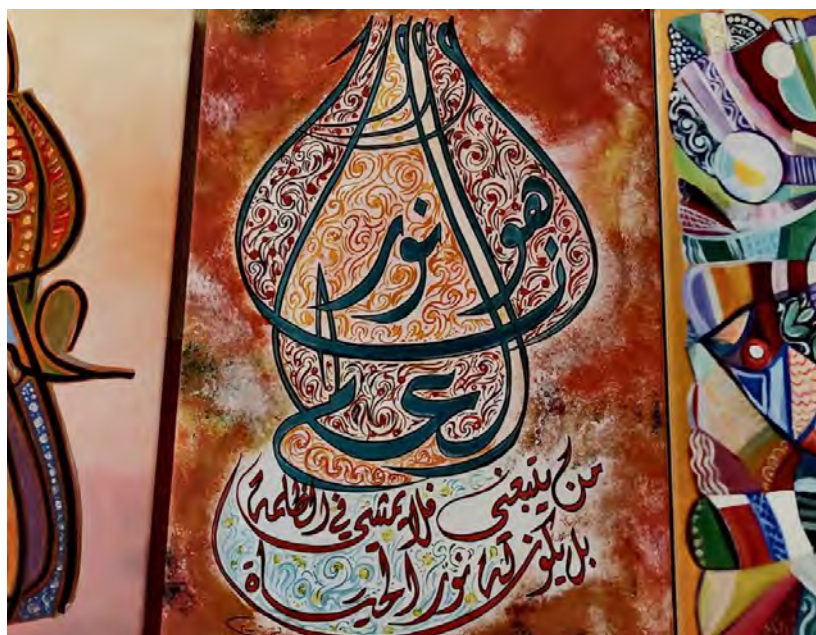 انا هو نور
العالم
من يتبعني فلا يمشي في الظلمة
بل يكون له نور الحياة